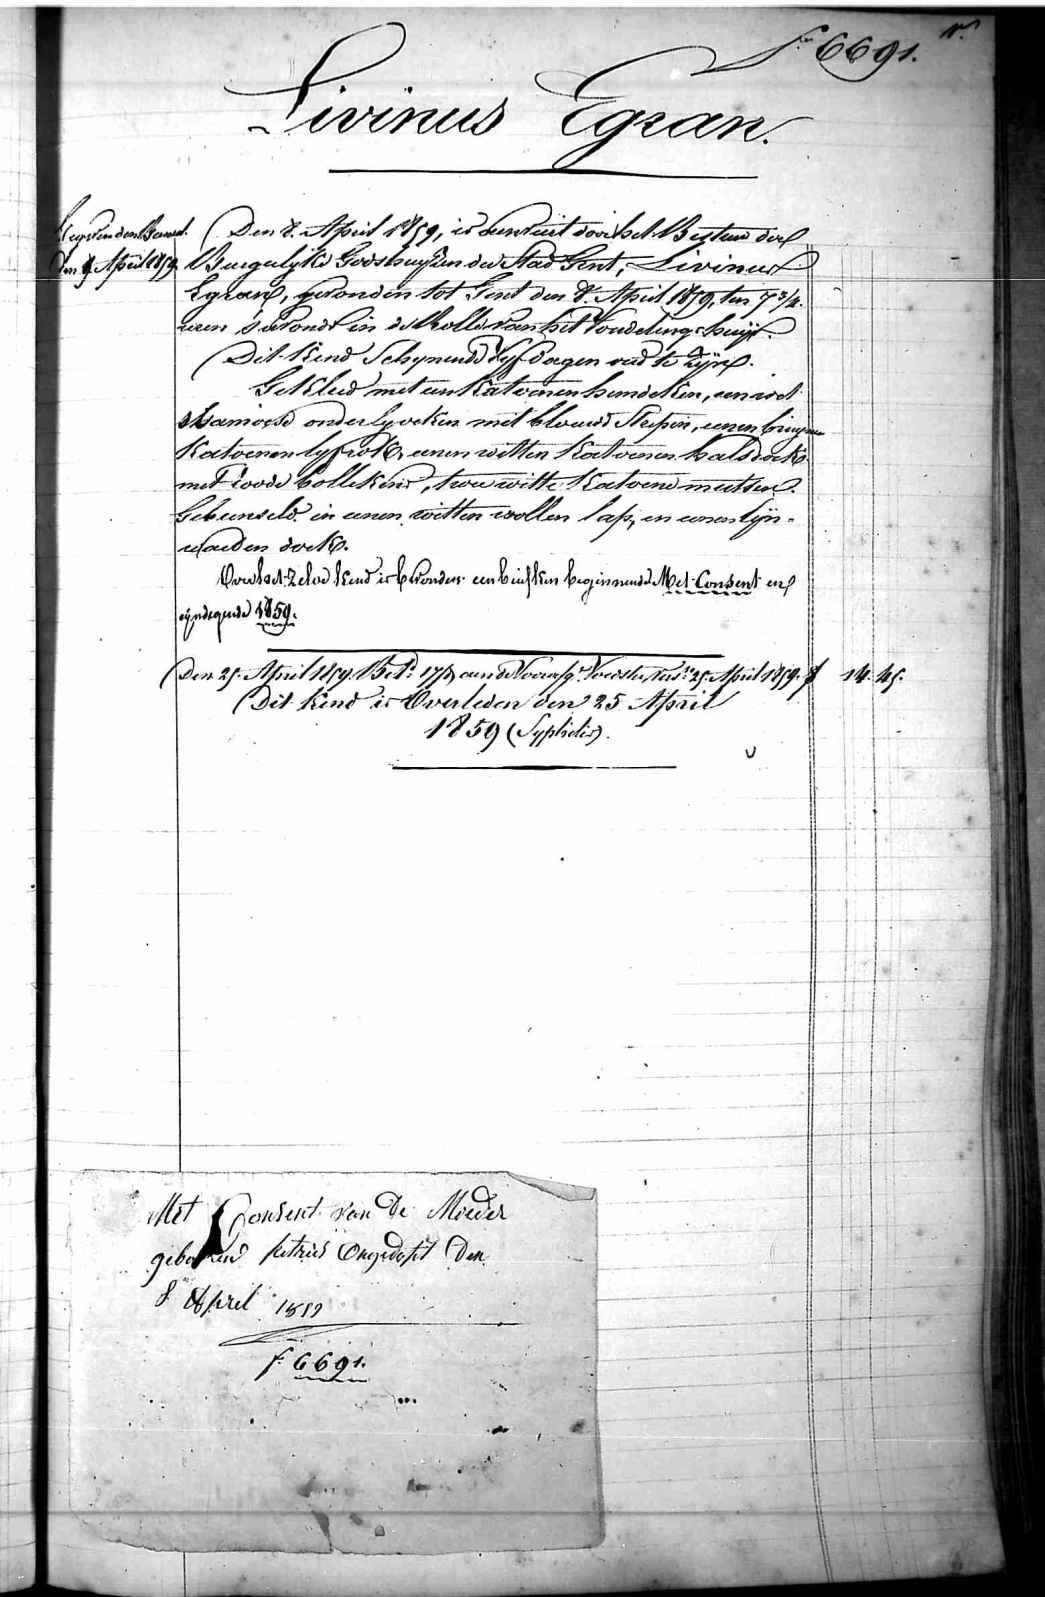 f. 6691. Vo.
Livinus Egran.
den 9 April 1859
Den 8. April 1859, is aenveirt door het Bestuer der
Burgerlyke Godshuyzen der Stad Gent, Livinus
Egran, gevonden tot Gent den 8. April 1859, ten 7 3/4
uren 's avonds in de Rolle van het Vondelings-huys.
Dit kind Schynende vyf dagen oud te Zyn.
Gekleed met een katoenen hemdeken, een
onderlyveken met blauwe Strepen, eenen bruynen
katoenen lyfrok, eenen witten katoenen halsdoek
met roode bollekens, twee witte katoene mutsen.
Gebunseld in eenen witten wollen lap, en eenen lyn-
waeden doek.
Over het Zelve kind is bevonden een briefken beginnende Met Consent en
eyndigende 1859.
Den 25. April 1859. Bet. 17 aen de Voedster 25 April 1859. f 14. 45.
Dit kind is Overleden den 25 April
1859 (Syphilis).
Met Consent van De Moeder
geboren petrus Ongedopt Den
8 April 1859
f. 6691.